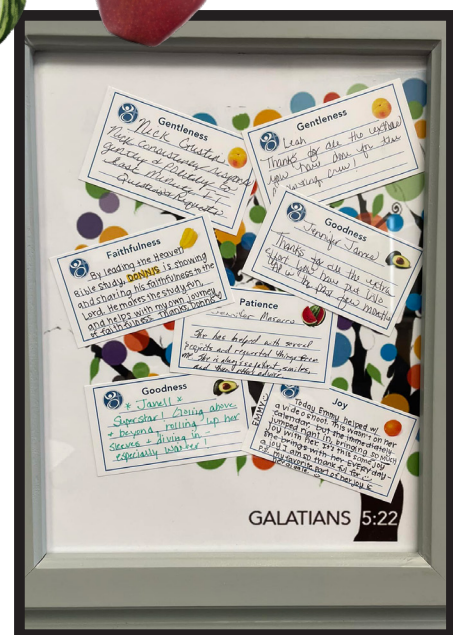 Gentleness
Nick
Nick consistently
gently & patiently to
last minute IT
Questions & Requests
Gentleness
Leah
Thanks for all the
you have done for the
crew!
Faithfulness
By leading the Heaven
Bible study, DONNIS is showing
and sharing his faithfulness to the
Lord. He makes the study fun,
and helps with my own journey
of faithfulness. Thanks Donnis!
Goodness
Jennifer
Thanks for all the extra
effort you have put into
in the past few months
Patience
She has helped with several
projects and requested things from
me. She is always patient, smiles,
and
Goodness
* Janell *
Superstar! Going above
+ beyond, rolling up her
sleeves + diving in -
especially
Joy
EMMY
Today Emmy helped w/
a video shoot. This wasn't on her
calendar, but she immediately
jumped right in, bringing so much
joy with her. It's this same joy
she brings with her EVERY day -
a joy I am so thankful for
P.S. my favorite part of her joy is
GALATIANS 5:22